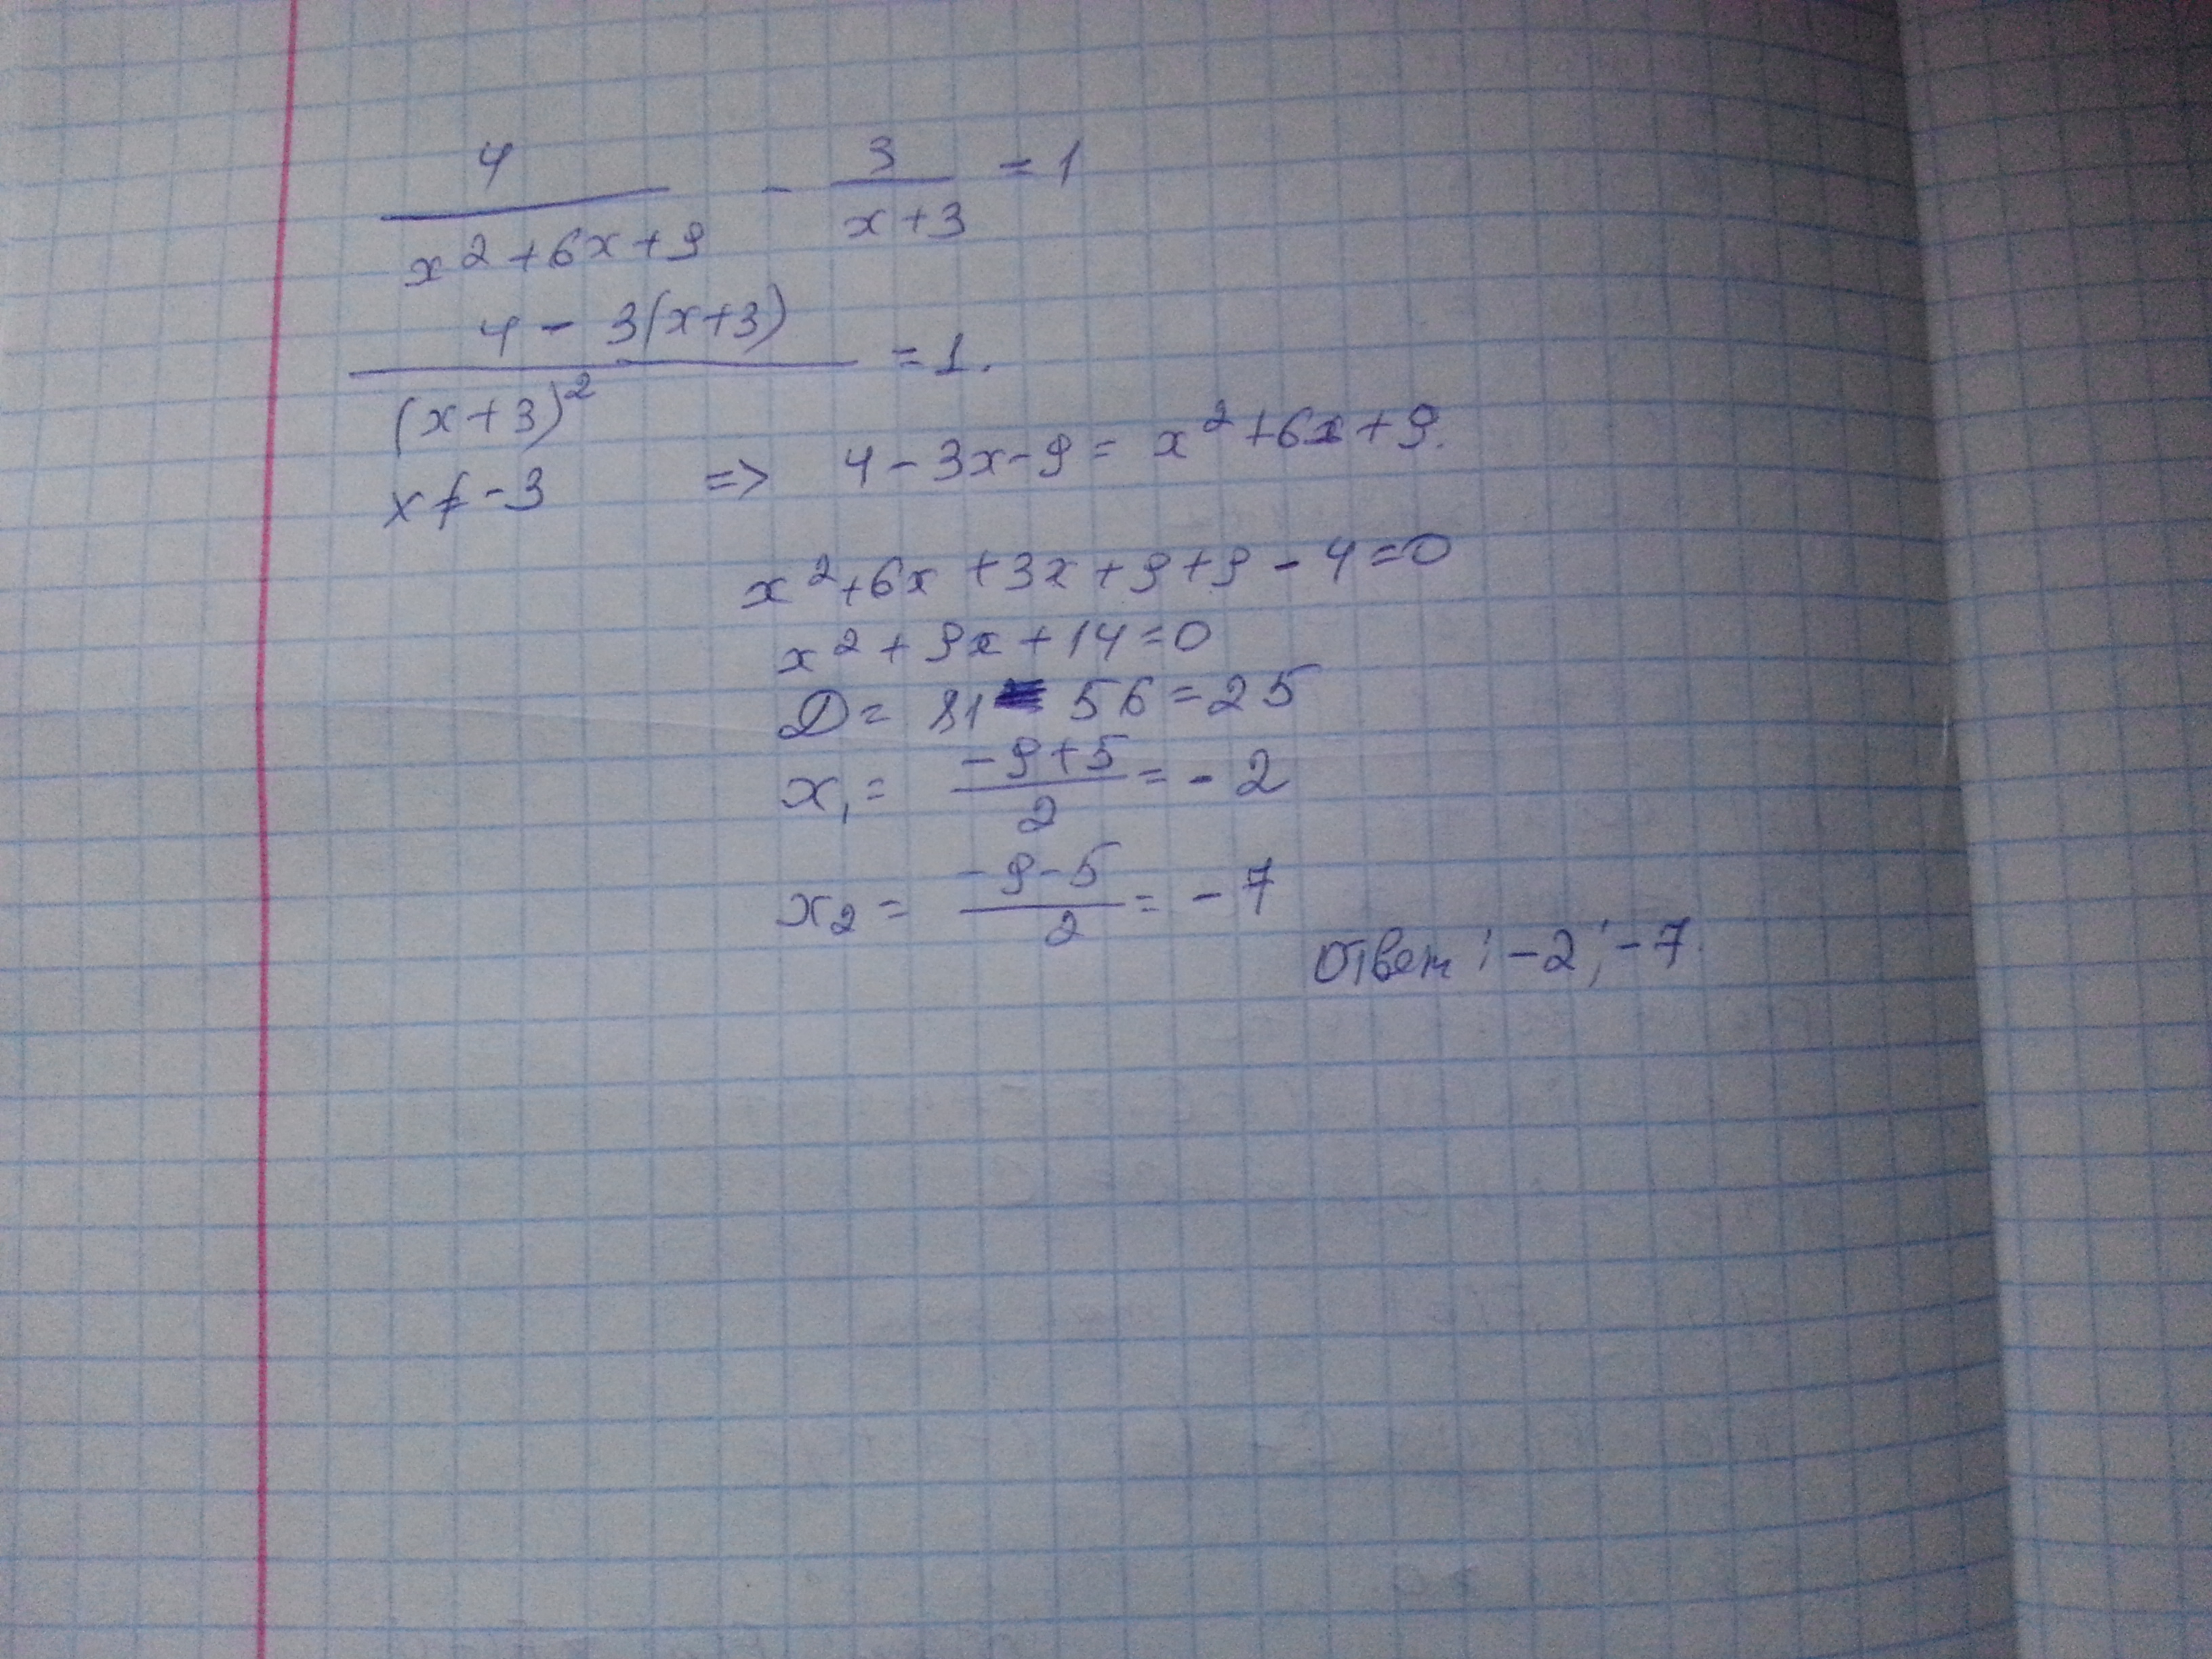 4/(x²+6x+9) - 3/(x+3) = 1
(4 - 3(x+3))/(x+3)² = 1.
x ≠ -3 => 4 - 3x - 9 = x² + 6x + 9.
x² + 6x + 3x + 9 + 9 - 4 = 0
x² + 9x + 14 = 0
D = 81 - 56 = 25
x₁ = (-9+5)/2 = -2
x₂ = (-9-5)/2 = -7
Ответ: -2; -7.